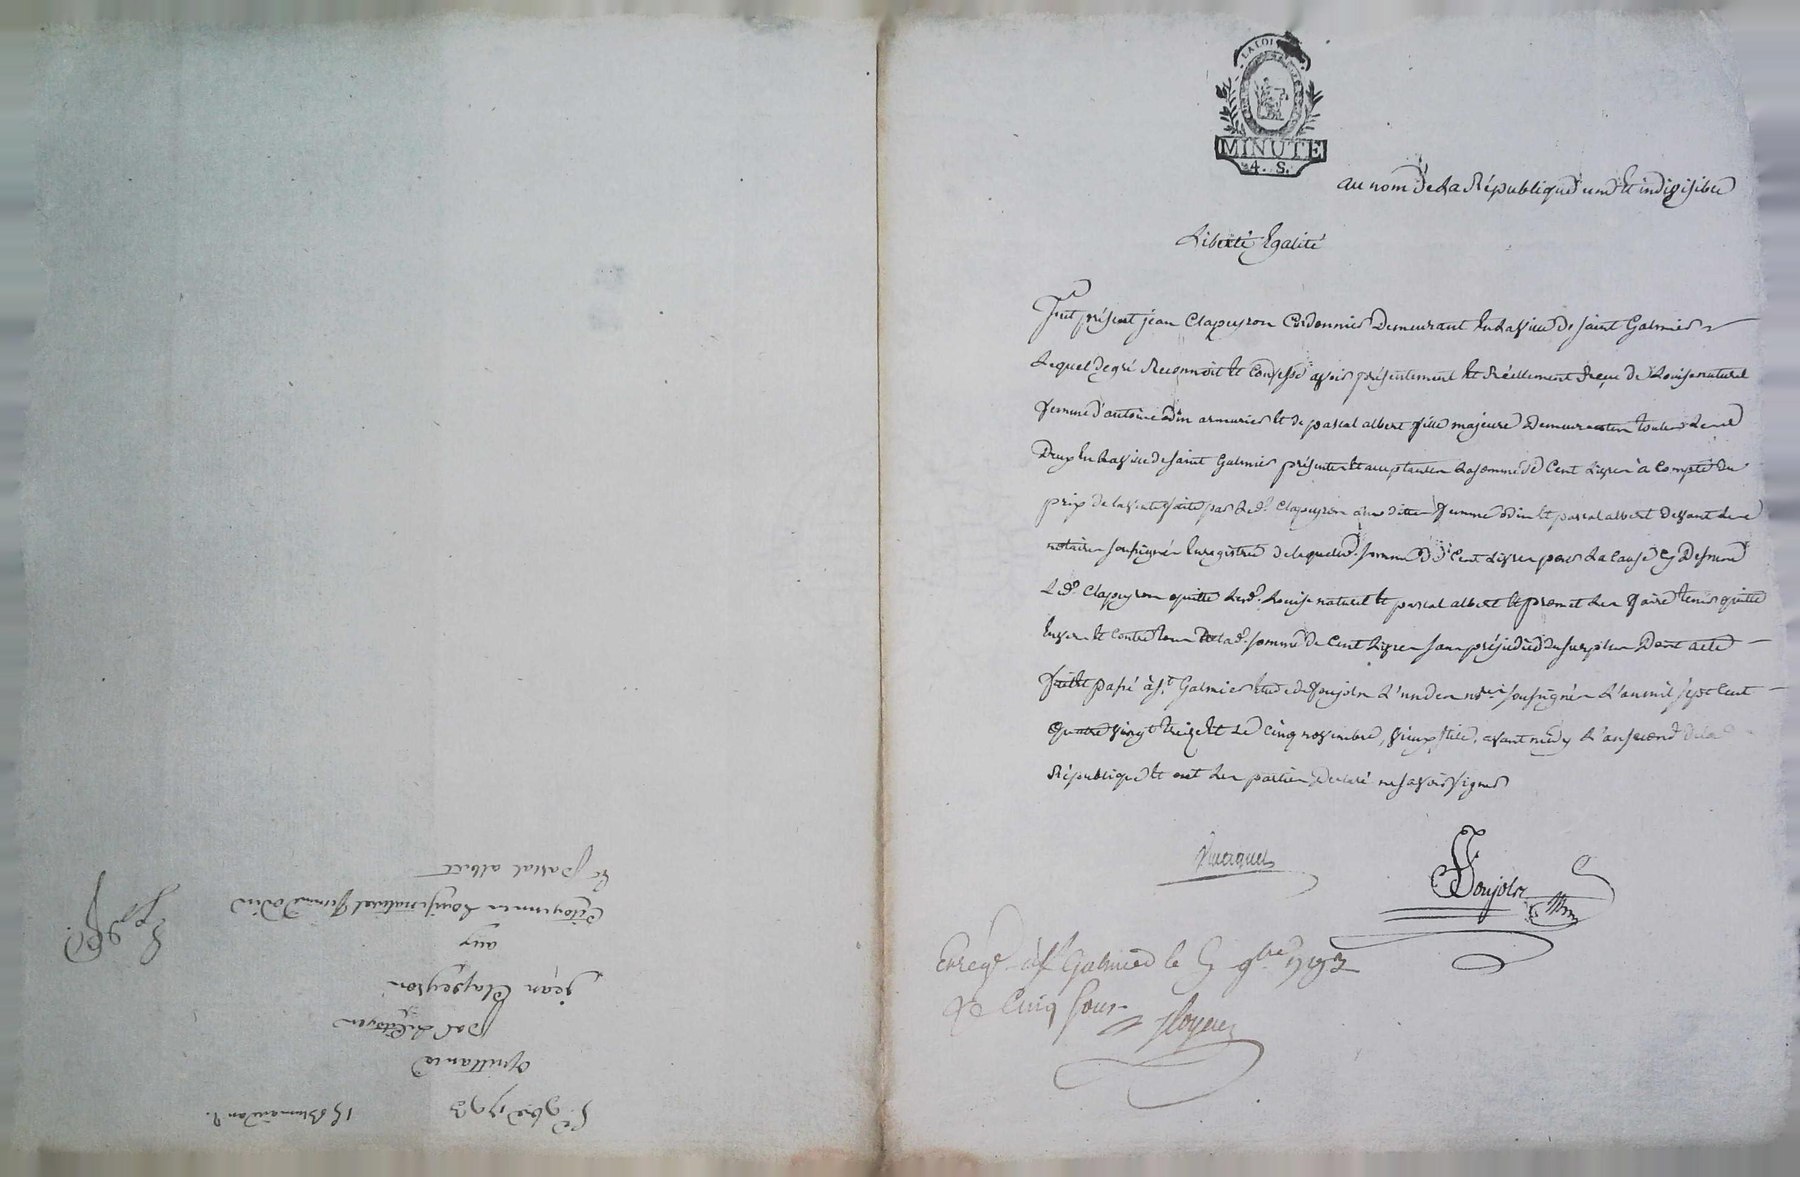 LA LOI
MINUTE
4. S.
au nom de La République une et indivisible
Liberté Egalité
Fut présent jean Clapeyron Cordonnier Demeurant En La ville De saint Galmier
Lequel de gré Reconnoit et Confesse avoir présentement et Réellement Reçu de Louise naturel
femme d'antoine odin armurier et de pascal albert fille majeure Demeurantes toutes Les
Deux En La ville de saint Galmier présentes et acceptantes La somme de Cent Livres à Compte du
prix de la vente faite par Le d. Clapeyron aux dittes femme odin et pascal albert devant Les
notaires soussignés Enregistré de laquelle somme de Cent Livres pour La Cause Cy Dessus
Le d. Clapeyron quitte Les d. Louise naturel et pascal albert et promet Les faire tenir quitte
Envers et Contre tous de la d. somme de Cent Livres sans préjudice du surplus Dont acte
fait et passé à St Galmier Etude de Poujols L'un des nres soussignés L'an mil sept Cent
quatre vingt treize et Le Cinq novembre, vieux stile, avant midy L'an second de la
République et ont Les parties Déclaré ne savoir signer
Poujols
Enregé à St Galmier le 5 9bre 1793
Rs Cinq sous
5e 9bre 1793
15 Brumaire an 2.
Quittance
par Le Citoyen
jean Clapeyron
aux
Citoyennes Louise naturel femme odin
Et pascal albert